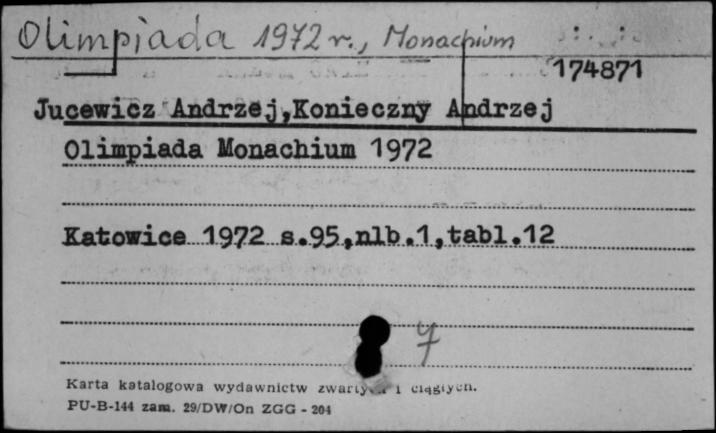 Olimpiada 1972 r., Monachium
174871
Jucewicz Andrzej,Konieczny Andrzej
Olimpiada Monachium 1972
Katowice 1972 s.95,nlb.1,tabl.12
7
Karta katalogowa wydawnictw zwartych i ciągłych.
PU-B-144 zam. 29/DW/On ZGG - 204